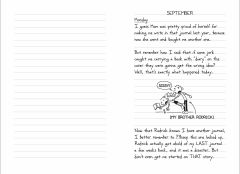 SEPTEMBER
Monday
I guess Mom was pretty proud of herself for
making me write in that journal last year, because
now she went and bought me another one.
But remember how I said that if some jerk
caught me carrying a book with "diary" on the
cover they were gonna get the wrong idea?
Well, that's exactly what happened today.
SISSY!
(MY BROTHER RODRICK)
Now that Rodrick knows I have another journal,
I better remember to keep this one locked up.
Rodrick actually got ahold of my LAST journal
a few weeks back, and it was a disaster. But
don't even get me started on THAT story.